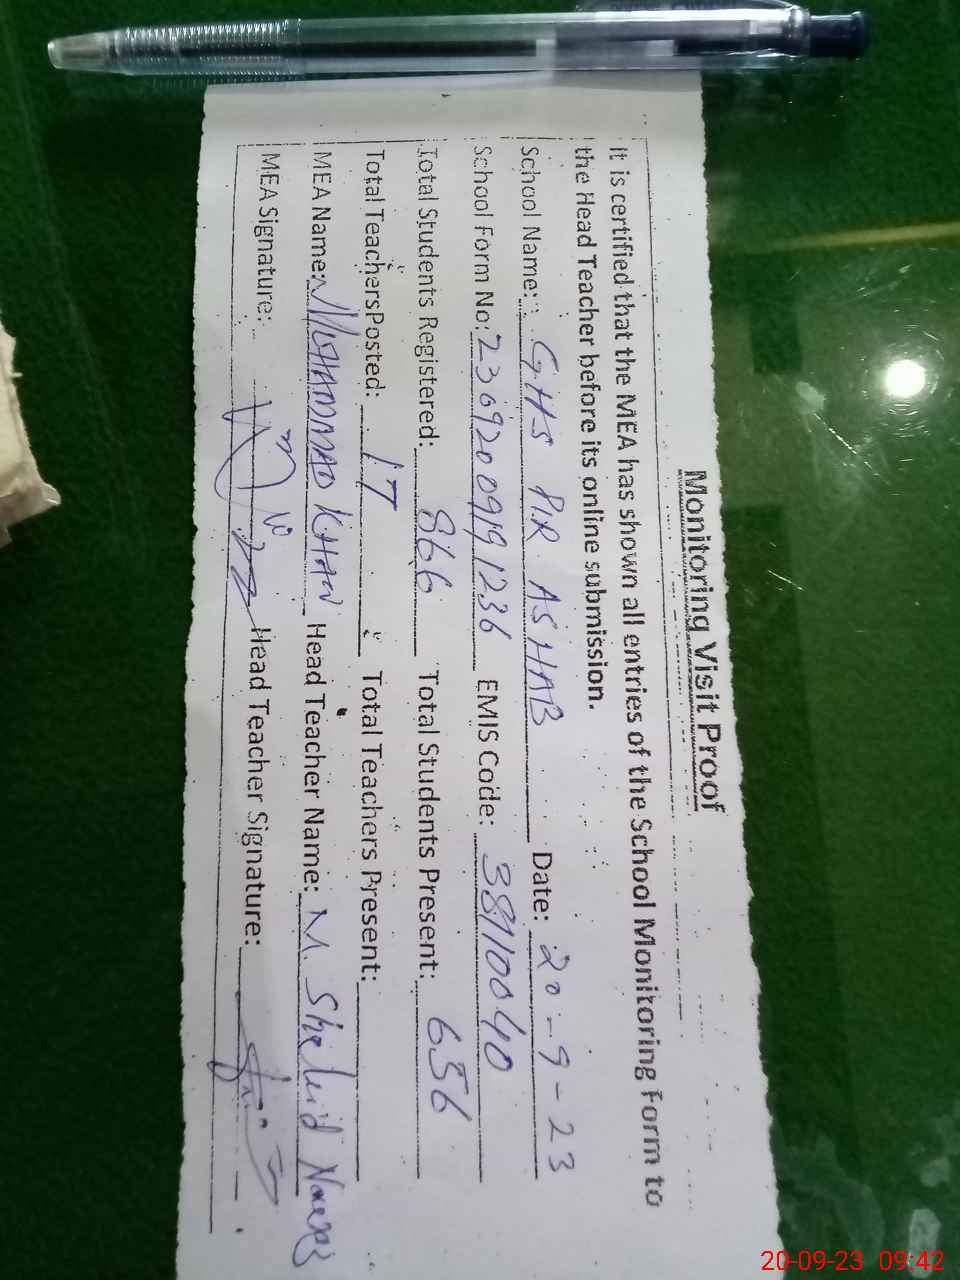 Monitoring Visit Proof
It is certified that the MEA has shown all entries of the School Monitoring Form to
the Head Teacher before its online submission.
School Name: GHS PIR ASHAB Date: 20-9-23
School Form No: 2369200919 1236 EMIS Code: 38110040
Total Students Registered: 866 Total Students Present: 656
Total Teachers Posted: 17 Total Teachers Present:
MEA Name: MUHAMMAD KHAN Head Teacher Name: M. Shahid
MEA Signature: Head Teacher Signature:
20-09-23 09:42